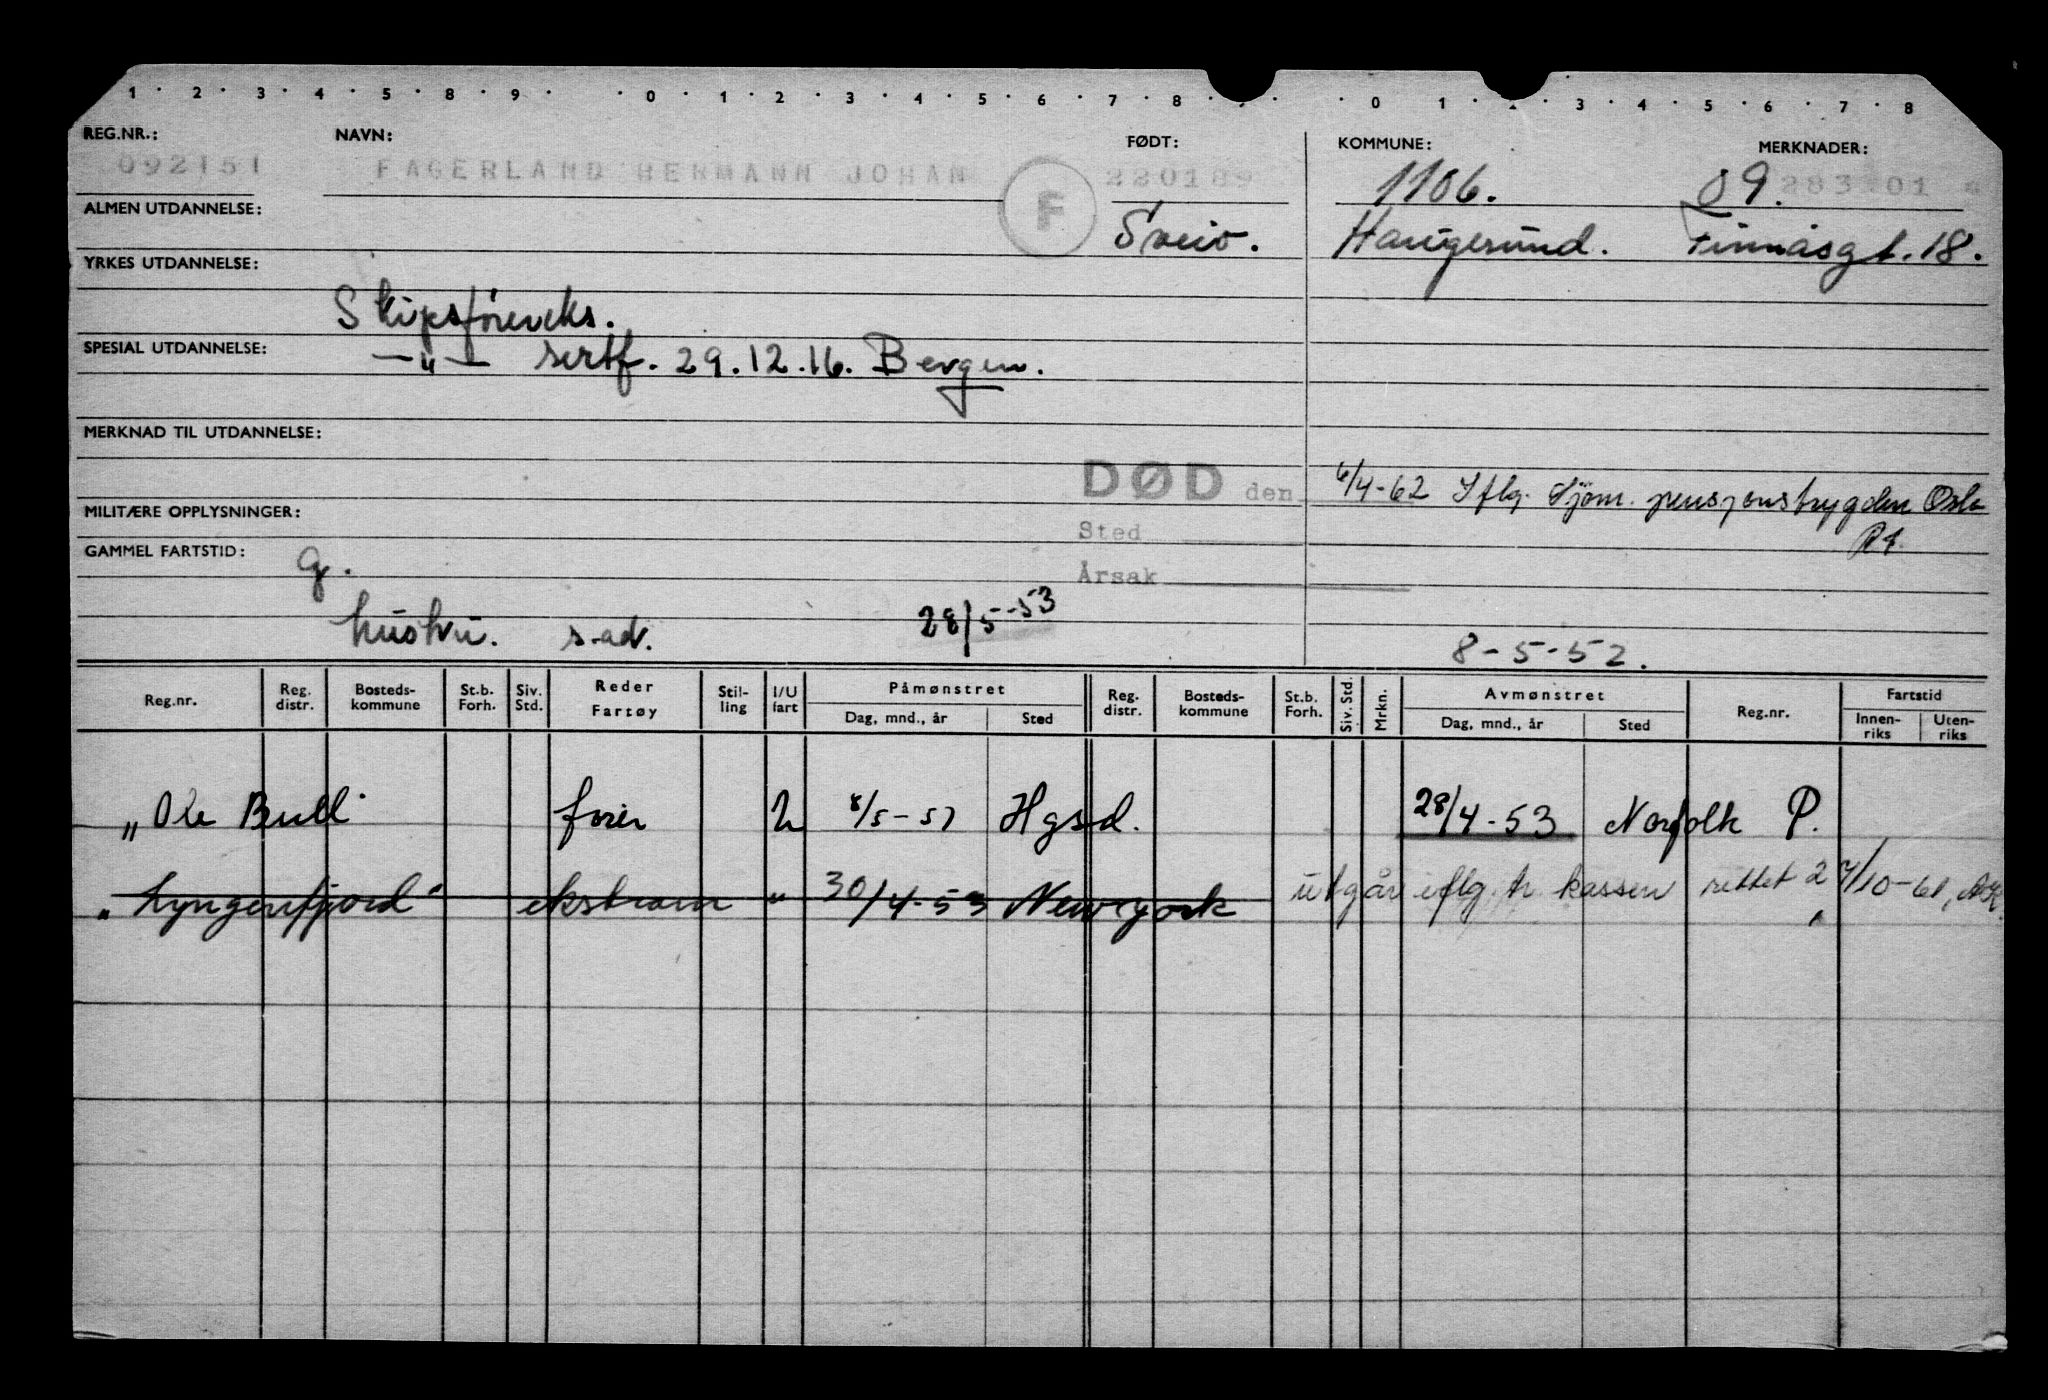 1 · 2 · 3 · 4 · 5 · 8 · 9 · · 0 · 1 · 2 · 3 · 4 · 5 · 6 · 7 · 8 · · · 0 1 · · 3 · 4 · 5 · 6 · 7 · 8
REG.NR.: NAVN: FØDT: KOMMUNE: MERKNADER:
092151 FAGERLAND HERMANN JOHAN F 220189 1106. 09.
ALMEN UTDANNELSE: Sveio. Haugesund. Finnåsgt. 18.
YRKES UTDANNELSE:
Skipsførereks.
SPESIAL UTDANNELSE: —„— sertf. 29.12.16. Bergen.
MERKNAD TIL UTDANNELSE:
DØD den 6/4-62 Iflg. Sjøm. pensjonstrygden Oslo
MILITÆRE OPPLYSNINGER: Sted
GAMMEL FARTSTID: g. Årsak
hustru. s.ad. 28/5-53 8-5-52.
Reg.nr. Reg. distr. Bosteds-kommune St.b. Forh. Siv. Std. Reder Fartøy Stil-ling I/U fart Påmønstret Dag, mnd., år Sted Reg. distr. Bosteds-kommune St.b. Forh. Siv. Std. Mrkn. Avmønstret Dag, mnd., år Sted Reg.nr. Fartstid Innen-riks Uten-riks
„Ole Bull" fører U 8/5-52 Hgsd. 28/4-53 Norfolk P.
„Lyngenfjord" ekstram " 30/4-53 New York utgår iflg. tr. kassen rettet 27/10-61,